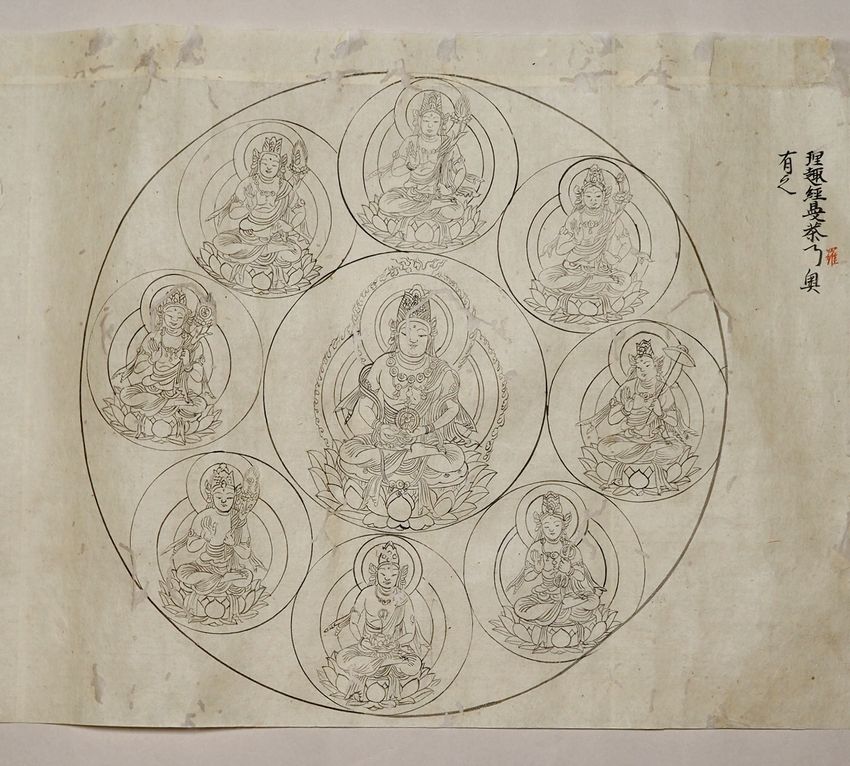 理趣経曼荼了奥
羅
有之